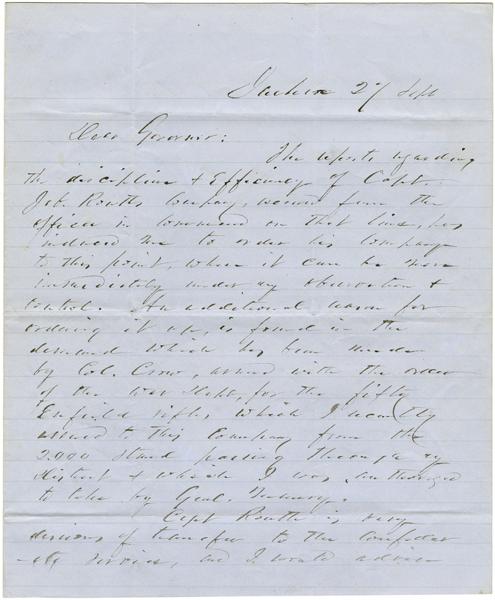 Jackson 27 Sept
Dear Governor:
The reports regarding
the discipline & Efficiency of Capt.
Job. Rouths Company, received from the
officer in command on that line, has
induced me to order his company
to this point, where it can be more
immediately under my observation &
control. An additional reason for
ordering it up, is found in the
demand which has been made
by Col. Crow, armed with the order
of the War Dept, for the fifty
Enfield rifles which I recently
issued to this Company from the
2.000 stand passing through my
district & which I was authorized
to take by Genl.
Capt Routh is very
desirous of transfer to the Confeder
-ate service, and I would advise